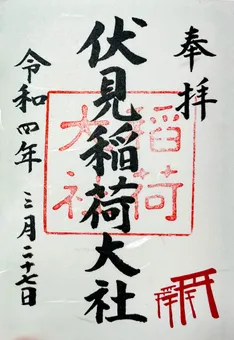 奉拝
伏見稲荷大社
稲荷
大社
令和四年 三月二十七日